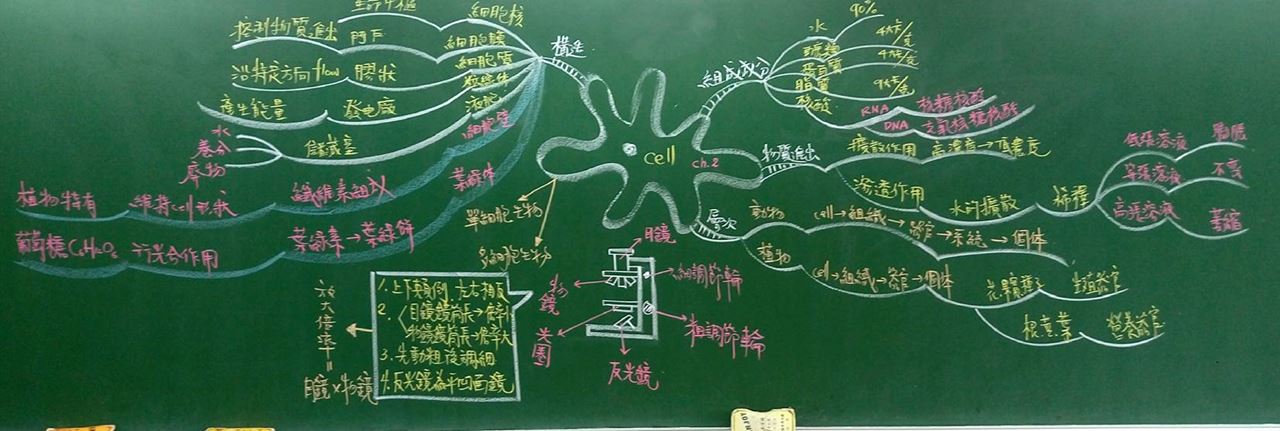 cell ch.2
構造
細胞核
生命中樞
細胞膜
門戶
控制物質進出
細胞質
膠狀
沿特定方向flow
粒線體
發電廠
產生能量
液胞
儲藏室
水
養分
廢物
細胞壁
纖維素組成
維持cell形狀
植物特有
葉綠体
葉綠素→葉綠餅
行光合作用
葡萄糖C6H12O6
組成成分
水
90%
醣類
4大卡/克
蛋白質
4大卡/克
脂質
9大卡/克
核酸
RNA 核糖核酸
DNA 去氧核糖核酸
物質進出
擴散作用
高濃度→低濃度
滲透作用
水的擴散
稀釋
低張溶液
等張溶液
不变
高張溶液
萎縮
層次
動物
cell→組織→器官→系統→個体
植物
cell→組織→器官→個体
花果種子
生殖器官
根莖葉
營養器官
單細胞生物
多細胞生物
目鏡
細調節輪
粗調節輪
物鏡
光圈
反光鏡
1.上下顛倒 左右相反
2.目鏡鏡筒長→倍率小
物鏡鏡筒長→倍率大
3.先動粗後調細
4.反光鏡為平凹面鏡
放大倍率
=
目鏡×物鏡